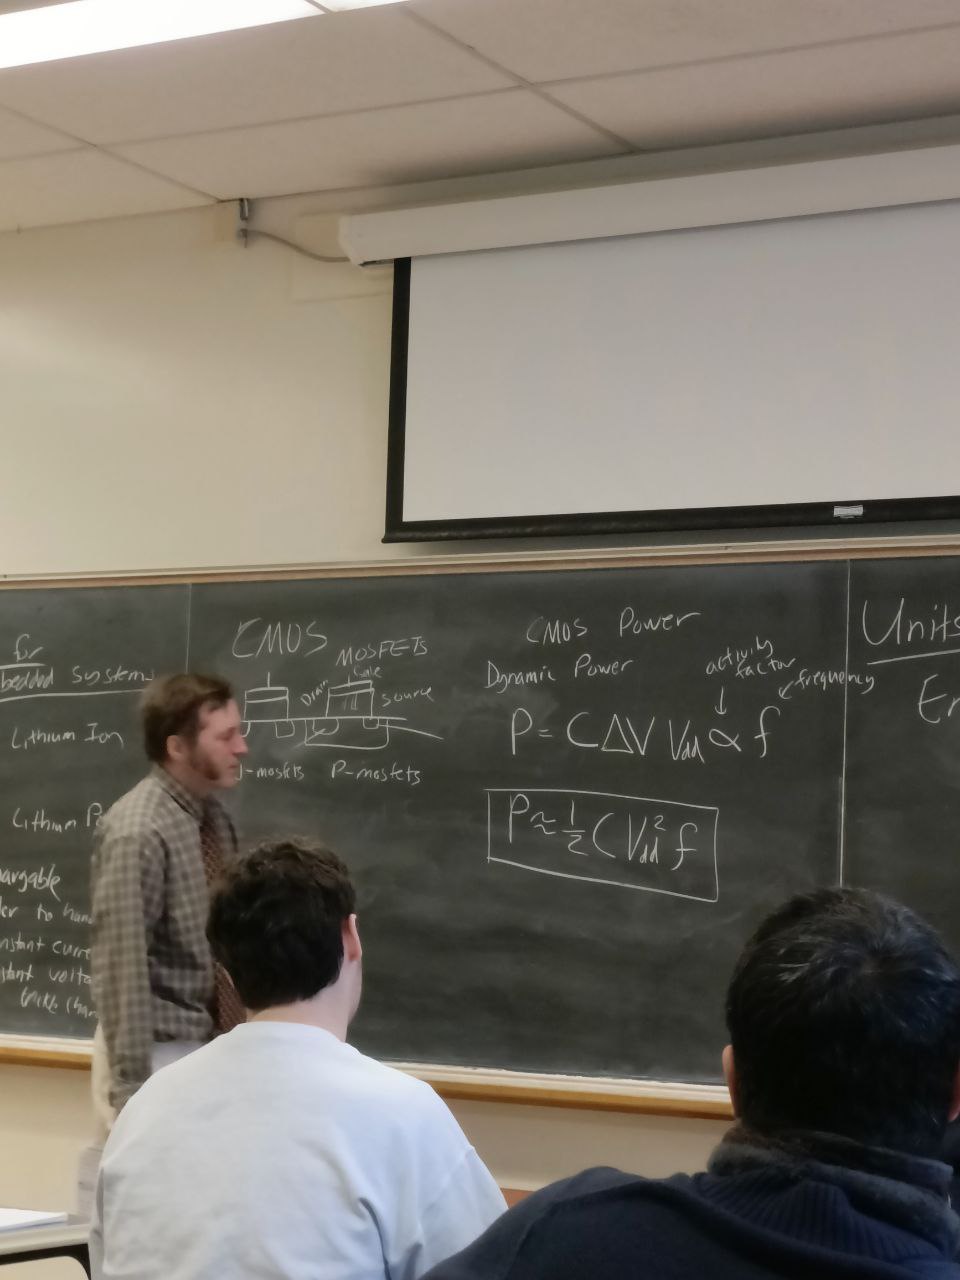 for
bedded systems
Lithium Ion
Lithium P
hargable
der to han
nstant curre
stant volta
trickle char
CMOS
MOSFETs
Gate
Drain
Source
-mosfets P-mosfets
CMOS Power
Dynamic Power
activity
factor
frequency
P = C ΔV Vdd ∝ f
P ≈ 1/2 C Vdd² f
Units
En